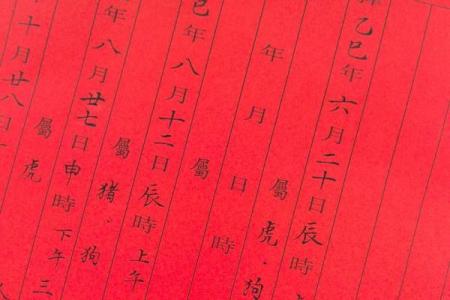 乙巳年六月二十日辰時
屬虎.狗
年月日時
屬
巳年八月十二日辰時上午
屬豬.狗
年八月廿七日申時下午三
屬虎
十月廿八日